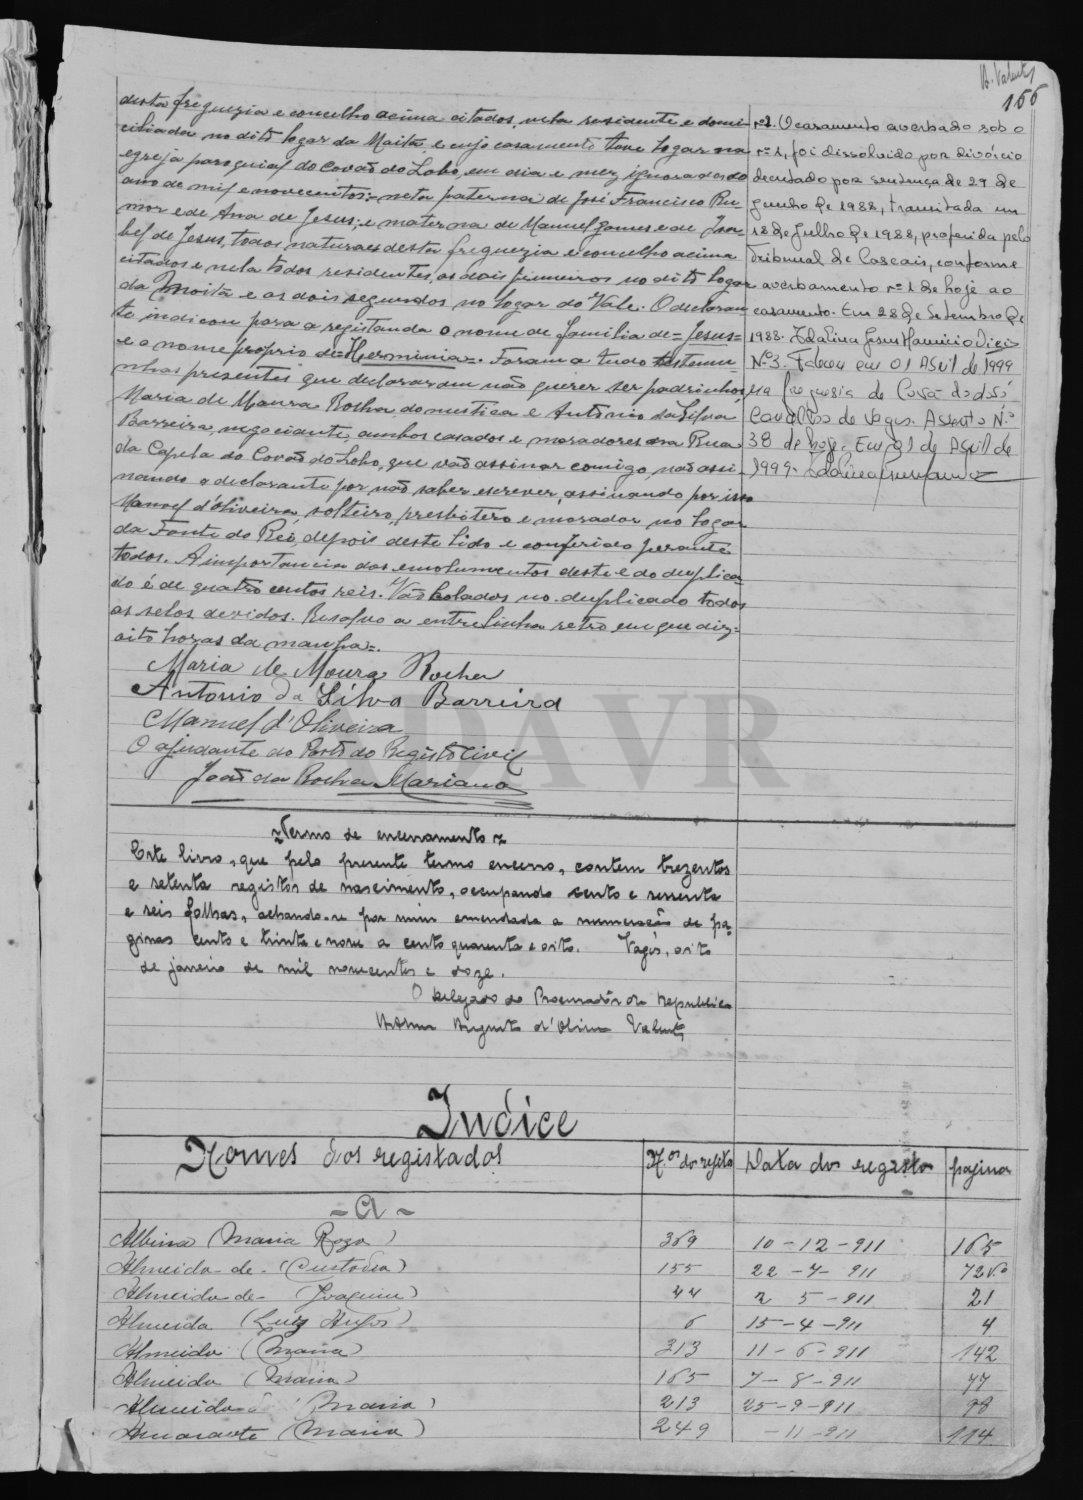 A. Valente
166
desta freguezia e concelho acima citados, nela residente e domi-
ciliada no dito logar da Moita, e cujo casamento teve logar na
egreja paroquial do Covão do Lobo, em dia e mez ignorados do
ano de mil e novecentos; neta paterna de José Francisco Ru-
mor e de Ana de Jesus; e materna de Manuel Gomes e de Isa-
bel de Jesus, todos naturaes desta freguezia e concelho acima
citados e nela todos residentes, os dois primeiros no dito logar
da Moita e os dois segundos no logar do Vale. O declaran-
te indicou para a registanda o nome de familia de = Jesus =
e o nome proprio de = Herminia =. Foram a tudo testemu-
nhas presentes que declararam não querer ser padrinhos
Maria de Moura Rocha domestica e António da Silva
Barreira, negociante, ambos casados e moradores na Rua
da Capela do Covão do Lobo, que vão assinar comigo, não assi-
nando o declarante por não saber escrever, assinando por isso
Manoel d'Oliveira, solteiro, presbitero e morador no logar
da Fonte do Rei, depois deste lido e conferido perante
todos. A importancia dos emolumentos deste e do duplica-
do é de quatro centos reis. Vão colados no duplicado todos
os selos devidos. Resalvo a entrelinha retro em que diz =
oito horas da manhã =.
Maria de Moura Rocha
Antonio da Silva Barreira
Manuel d'Oliveira
O ajudante do Posto do Registo Civil
João da Rocha Mariano
nº 2. O casamento averbado sob o
nº 1, foi dissolvido por divórcio
decretado por sentença de 29 de
Junho de 1988, transitada em
18 de Julho de 1988, proferida pelo
Tribunal de Cascais, conforme
averbamento nº 1 de hoje ao
casamento. Em 28 de Setembro de
1988. Idalina Jesus
Nº 3. Faleceu em 01 Abril de 1999
na freguesia de Covão do Lobo
Concelho de Vagos. Assento Nº
38 de hoje. Em 01 de Abril de
1999.
DAVR
Termo de encerramento
Este livro, que pelo presente termo encerro, contem trezentos
e setenta registos de nascimento, ocupando cento e sessenta
e seis folhas, achando-se por mim emendada a numeração de pa-
ginas cento e trinta e nove a cento quarenta e oito. Vagos, oito
de janeiro de mil novecentos e doze.
O Delegado do Procurador da Republica
Augusto d'Oliveira Valente
Indice
Nomes dos registados Nos do registo Data dos registos pagina
- A -
Albina (Maria Roza) 369 10-12-911 165
Almeida de (Custodia) 155 22-7-911 72 vo
Almeida de (Joaquim) 44 2 5-911 21
Almeida (Luiz) 6 15-4-911 4
Almeida (Maria) 313 11-6-911 142
Almeida (Maria) 165 7-8-911 77
Almeida (Maria) 213 25-9-911 98
Amarante (Maria) 249 -11-911 114